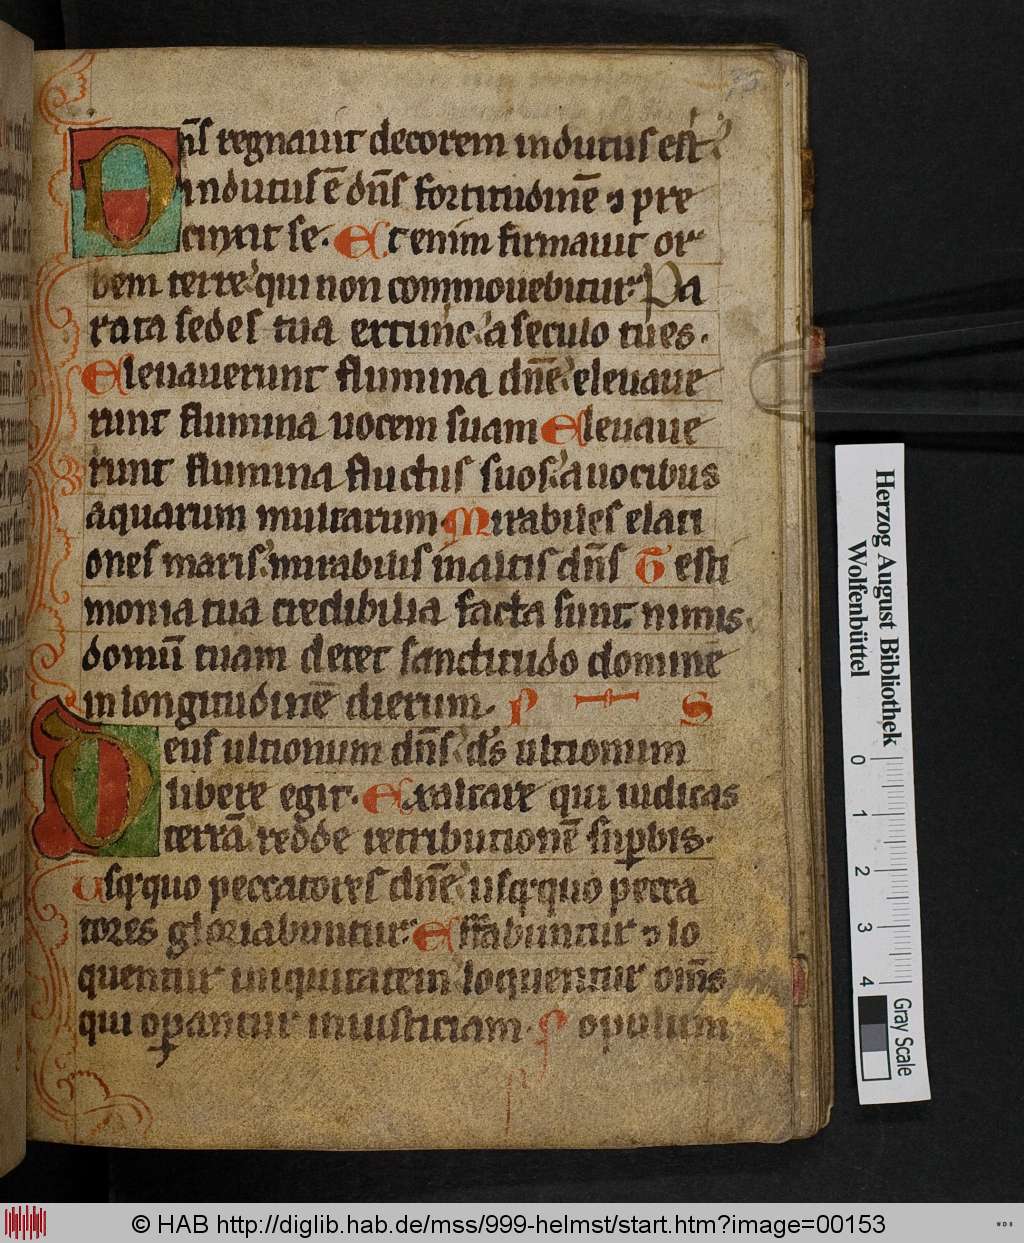 75
Dn̄s regnauit decorem indutus est.
indutus ē dn̄s fortitudinē ⁊ pre
cinxit se. Et enim firmauit or
bem terre qui non commouebitur. Pa
rata sedes tua extunc a seculo tu es.
Eleuauerunt flumina dn̄e eleuaue
runt flumina uocem suam Eleuaue
runt flumina fluctus suos. a uocibus
aquarum multarum. Mirabiles elati
ones maris. mirabilis in altis dn̄s Testi
monia tua credibilia facta sunt nimis.
domū tuam decet sanctitudo domine
in longitudinē dierum. P S
Deus ultionum dn̄s ds̄ ultionum
libere egit. Exaltare qui iudicas
terrā redde retributionē suꝑbis.
Usq̄quo peccatores dn̄e usq̄quo pecca
tores gloriabuntur. Effabuntur ⁊ lo
quentur iniquitatem loquentur om̄s
qui oꝑantur iniusticiam. Populum
Herzog August Bibliothek
Wolfenbüttel
0 1 2 3 4
Gray Scale
© HAB http://diglib.hab.de/mss/999-helmst/start.htm?image=00153